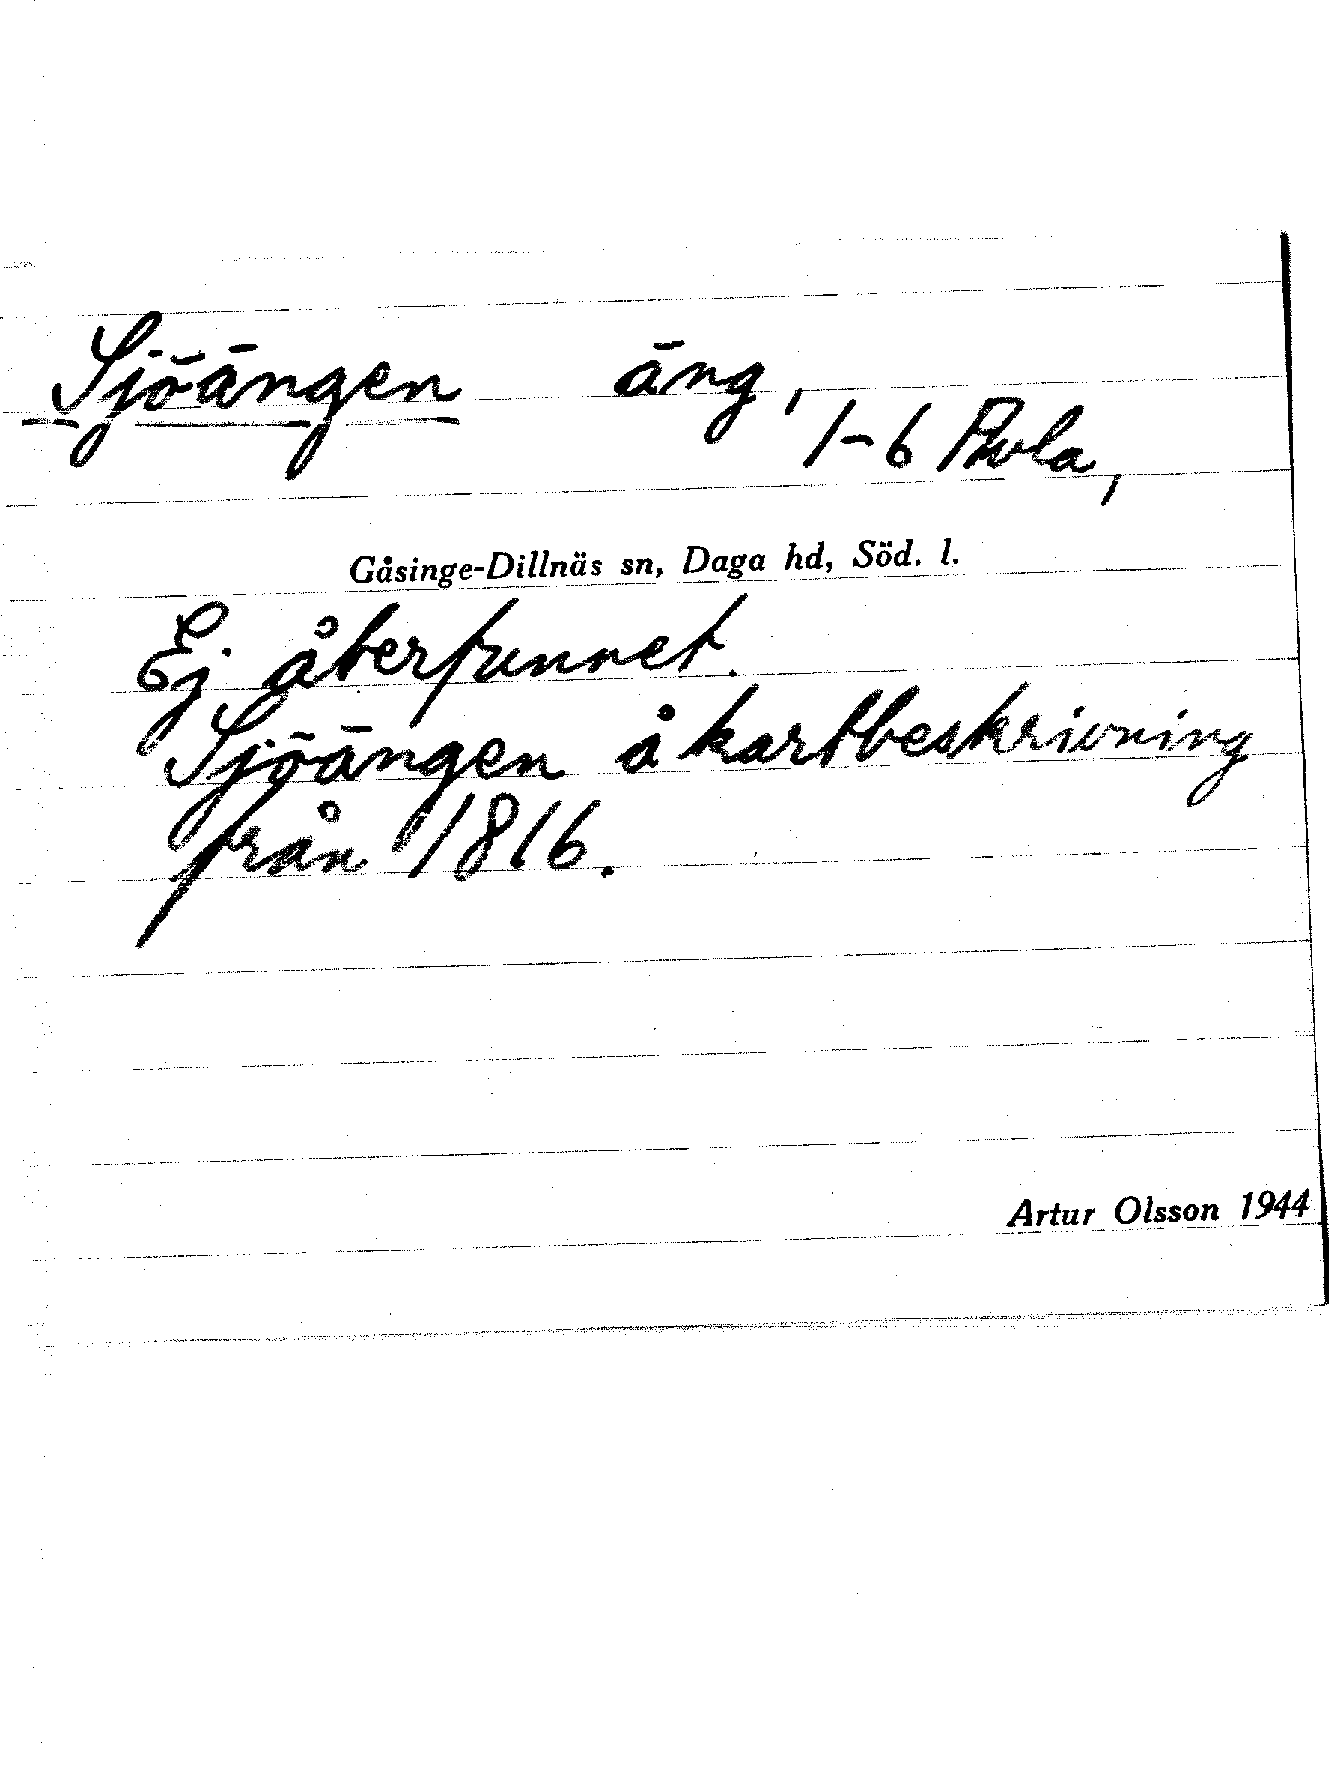 Sjöängen äng,
1-6
Gåsinge-Dillnäs sn, Daga hd, Söd. l.
Ej återfunnet.
Sjöängen å kartbeskrivning
från 1816.
Artur Olsson 1944